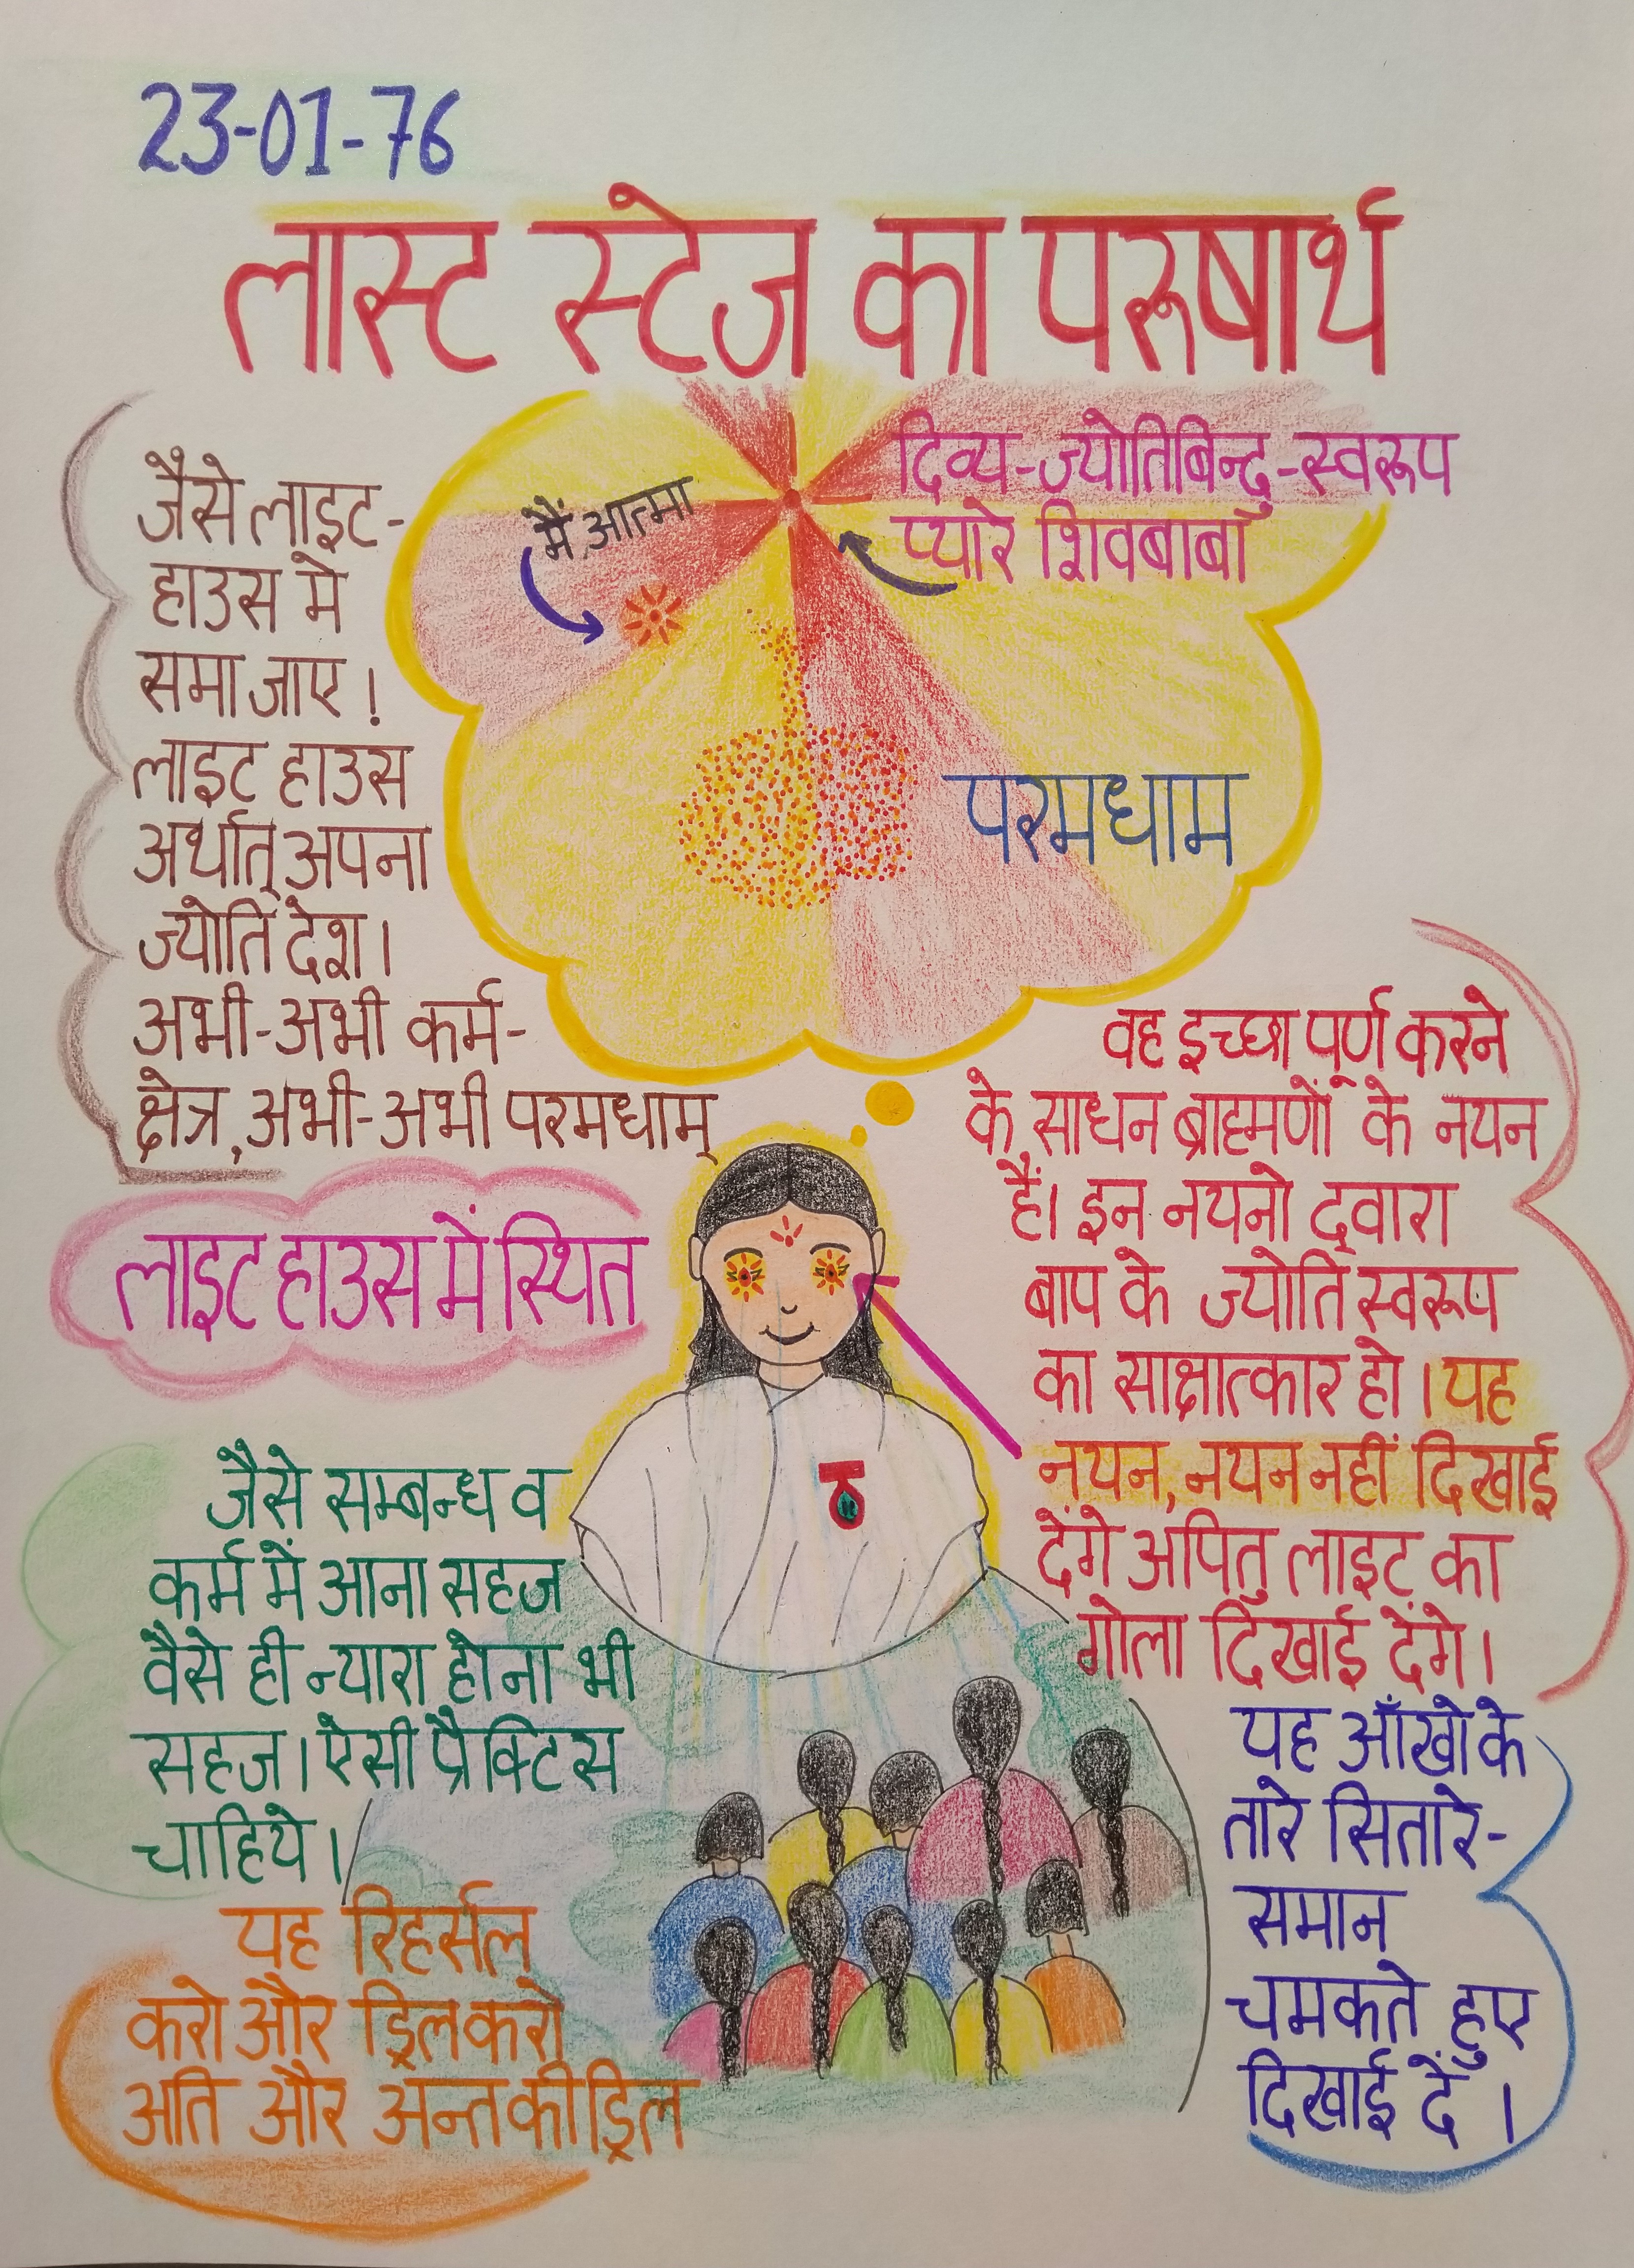 23-01-76
लास्ट स्टेज का परूषार्थ
दिव्य-ज्योतिबिन्दु-स्वरूप
प्यारे शिवबाबा
मैं आत्मा
परमधाम
जैसे लाइट-
हाउस मे
समा जाए!
लाइट हाउस
अर्थात् अपना
ज्योति देश।
अभी-अभी कर्म-
क्षेत्र, अभी-अभी परमधाम्
लाइट हाउस में स्थित
वह इच्छा पूर्ण करने
के साधन ब्राह्मणों के नयन
हैं। इन नयनो द्वारा
बाप के ज्योति स्वरूप
का साक्षात्कार हो। यह
नयन, नयन नहीं दिखाई
देंगे अपितु लाइट का
गोला दिखाई देंगे।
जैसे सम्बन्ध व
कर्म में आना सहज
वैसे ही न्यारा होना भी
सहज। ऐसी प्रैक्टिस
चाहिये।
यह आँखो के
तारे सितारे-
समान्
चमकते हुए
दिखाई दें।
यह रिहर्सल्
करो और ड्रिल करो
अति और अन्त की ड्रिल